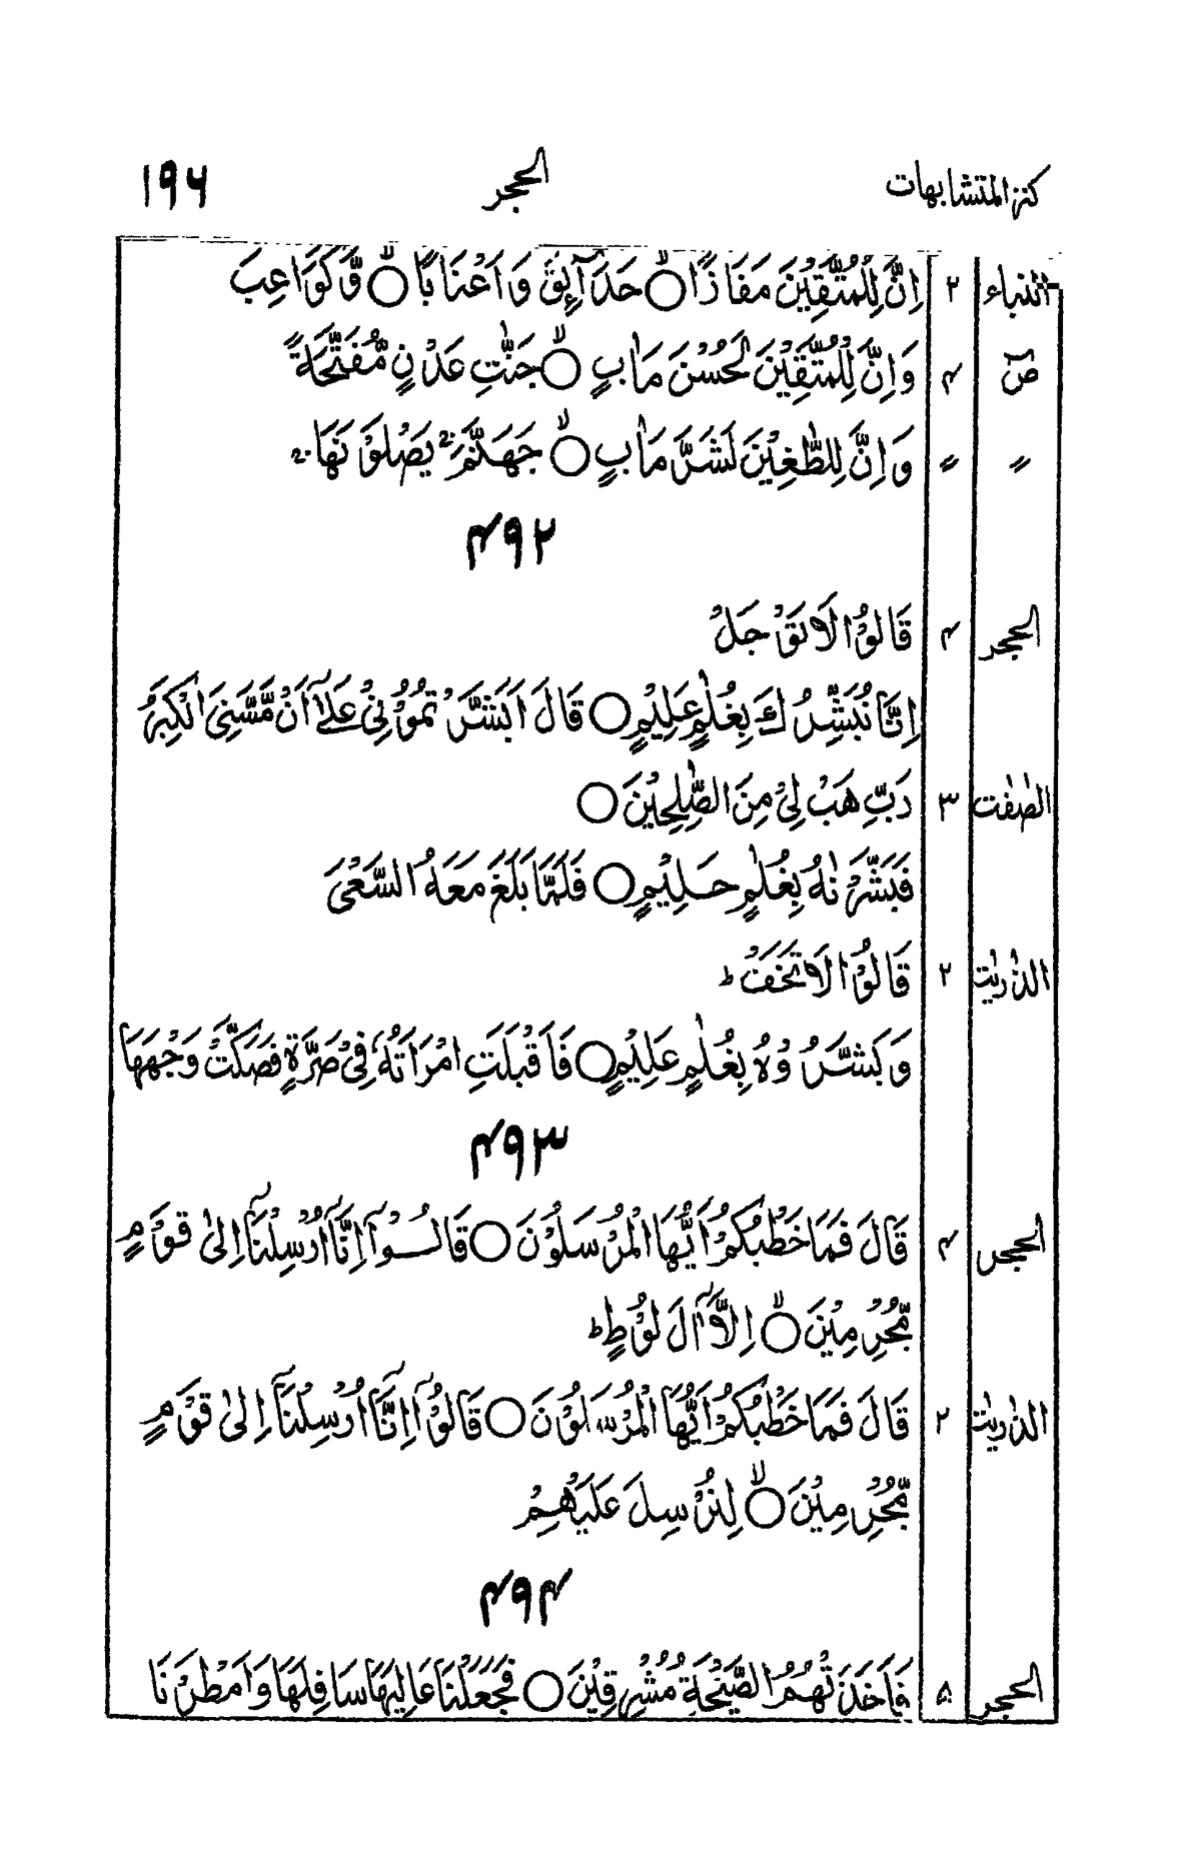 كنز المتشابهات الحجر ۱۹۶
النباء ۲ اِنَّ لِلْمُتَّقِيْنَ مَفَازًا ۙ○ حَدَآئِقَ وَاَعْنَابًا ۙ○ وَّكَوَاعِبَ
صٓ ۴ وَاِنَّ لِلْمُتَّقِيْنَ لَحُسْنَ مَاٰبٍ ۙ○ جَنّٰتِ عَدْنٍ مُّفَتَّحَةً
〃 〃 وَاِنَّ لِلطّٰغِيْنَ لَشَرَّ مَاٰبٍ ۙ○ جَهَنَّمَ ۚ يَصْلَوْنَهَا ۚ
۴۹۲
الحجر ۴ قَالُوْا لَا تَوْجَلْ
اِنَّا نُبَشِّرُكَ بِغُلٰمٍ عَلِيْمٍ○ قَالَ اَبَشَّرْتُمُوْنِيْ عَلٰٓى اَنْ مَّسَّنِيَ الْكِبَرُ
الصّٰفٰت ۳ رَبِّ هَبْ لِيْ مِنَ الصّٰلِحِيْنَ○
فَبَشَّرْنٰهُ بِغُلٰمٍ حَلِيْمٍ○ فَلَمَّا بَلَغَ مَعَهُ السَّعْيَ
الذّٰريٰت ۲ قَالُوْا لَا تَخَفْ ؕ
وَبَشَّرُوْهُ بِغُلٰمٍ عَلِيْمٍ○ فَاَقْبَلَتِ امْرَاَتُهٗ فِيْ صَرَّةٍ فَصَكَّتْ وَجْهَهَا
۴۹۳
الحجر ۴ قَالَ فَمَا خَطْبُكُمْ اَيُّهَا الْمُرْسَلُوْنَ○ قَالُوْٓا اِنَّآ اُرْسِلْنَآ اِلٰى قَوْمٍ
مُّجْرِمِيْنَ ۙ○ اِلَّآ اٰلَ لُوْطٍ ؕ
الذّٰريٰت ۲ قَالَ فَمَا خَطْبُكُمْ اَيُّهَا الْمُرْسَلُوْنَ○ قَالُوْٓا اِنَّآ اُرْسِلْنَآ اِلٰى قَوْمٍ
مُّجْرِمِيْنَ ۙ○ لِنُرْسِلَ عَلَيْهِمْ
۴۹۴
الحجر ۵ فَاَخَذَتْهُمُ الصَّيْحَةُ مُشْرِقِيْنَ○ فَجَعَلْنَا عَالِيَهَا سَافِلَهَا وَاَمْطَرْنَا